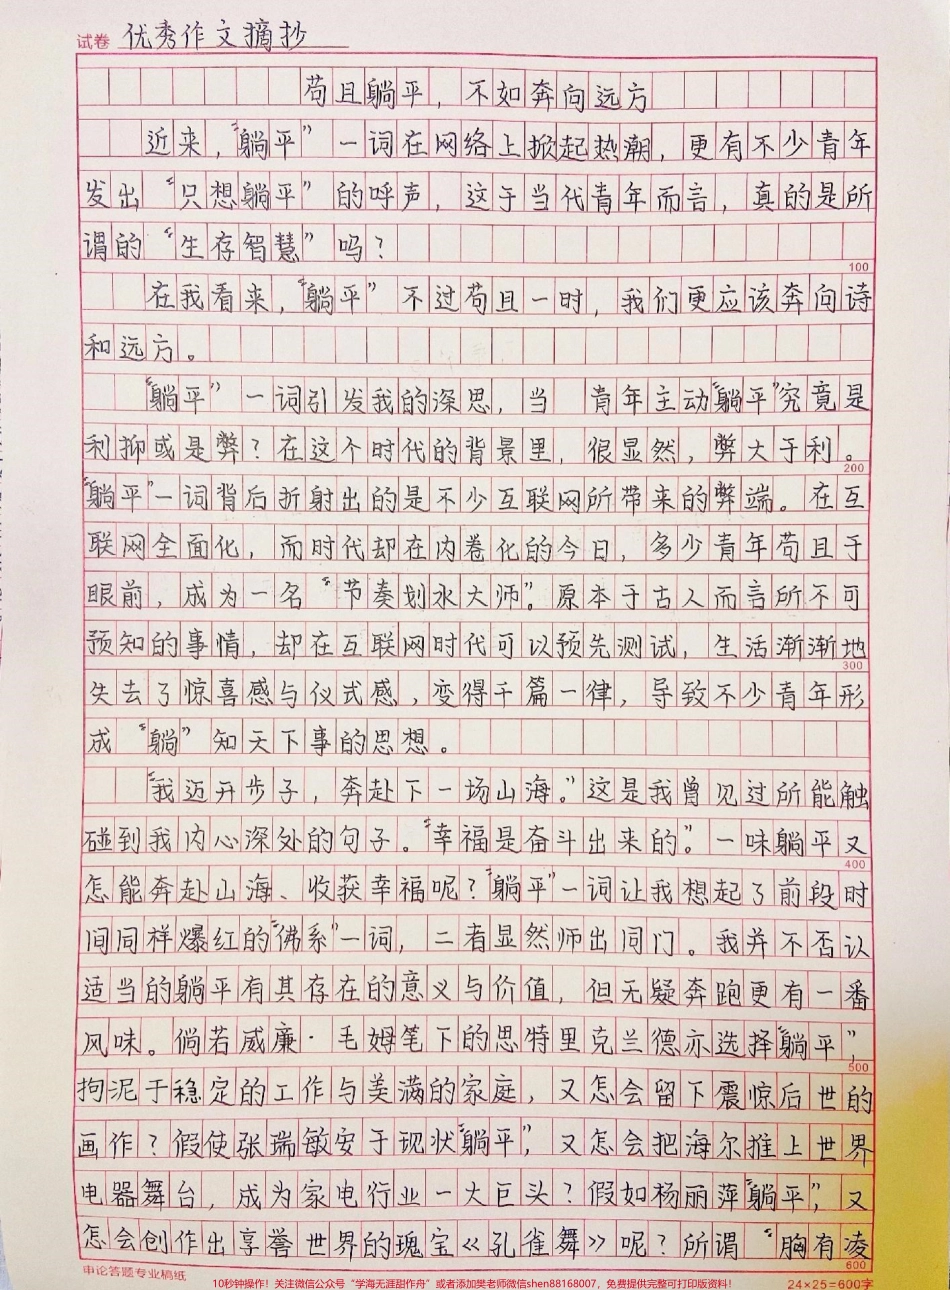 试卷 优秀作文摘抄
苟且躺平，不如奔向远方
近来，“躺平”一词在网络上掀起热潮，更有不少青年
发出“只想躺平”的呼声，这于当代青年而言，真的是所
谓的“生存智慧”吗？
100
在我看来，“躺平”不过苟且一时，我们更应该奔向诗
和远方。
“躺平”一词引发我的深思，当 青年主动“躺平”究竟是
利抑或是弊？在这个时代的背景里，很显然，弊大于利。
200
“躺平”一词背后折射出的是不少互联网所带来的弊端。在互
联网全面化，而时代却在内卷化的今日，多少青年苟且于
眼前，成为一名“节奏划水大师”。原本于古人而言所不可
预知的事情，却在互联网时代可以预先测试，生活渐渐地
300
失去了惊喜感与仪式感，变得千篇一律，导致不少青年形
成“躺”知天下事的思想。
“我迈开步子，奔赴下一场山海。”这是我曾见过所能触
碰到我内心深处的句子。“幸福是奋斗出来的”。一味躺平又
400
怎能奔赴山海、收获幸福呢？“躺平”一词让我想起了前段时
间同样爆红的“佛系”一词，二者显然师出同门。我并不否认
适当的躺平有其存在的意义与价值，但无疑奔跑更有一番
风味。倘若威廉·毛姆笔下的思特里克兰德亦选择“躺平”，
500
拘泥于稳定的工作与美满的家庭，又怎会留下震惊后世的
画作？假使张瑞敏安于现状“躺平”，又怎会把海尔推上世界
电器舞台，成为家电行业一大巨头？假如杨丽萍“躺平”，又
怎会创作出享誉世界的瑰宝《孔雀舞》呢？所谓“胸有凌
600
申论答题专业稿纸
10秒钟操作！关注微信公众号“学海无涯甜作舟”或者添加樊老师微信shen88168007，免费提供完整可打印版资料！
24×25=600字